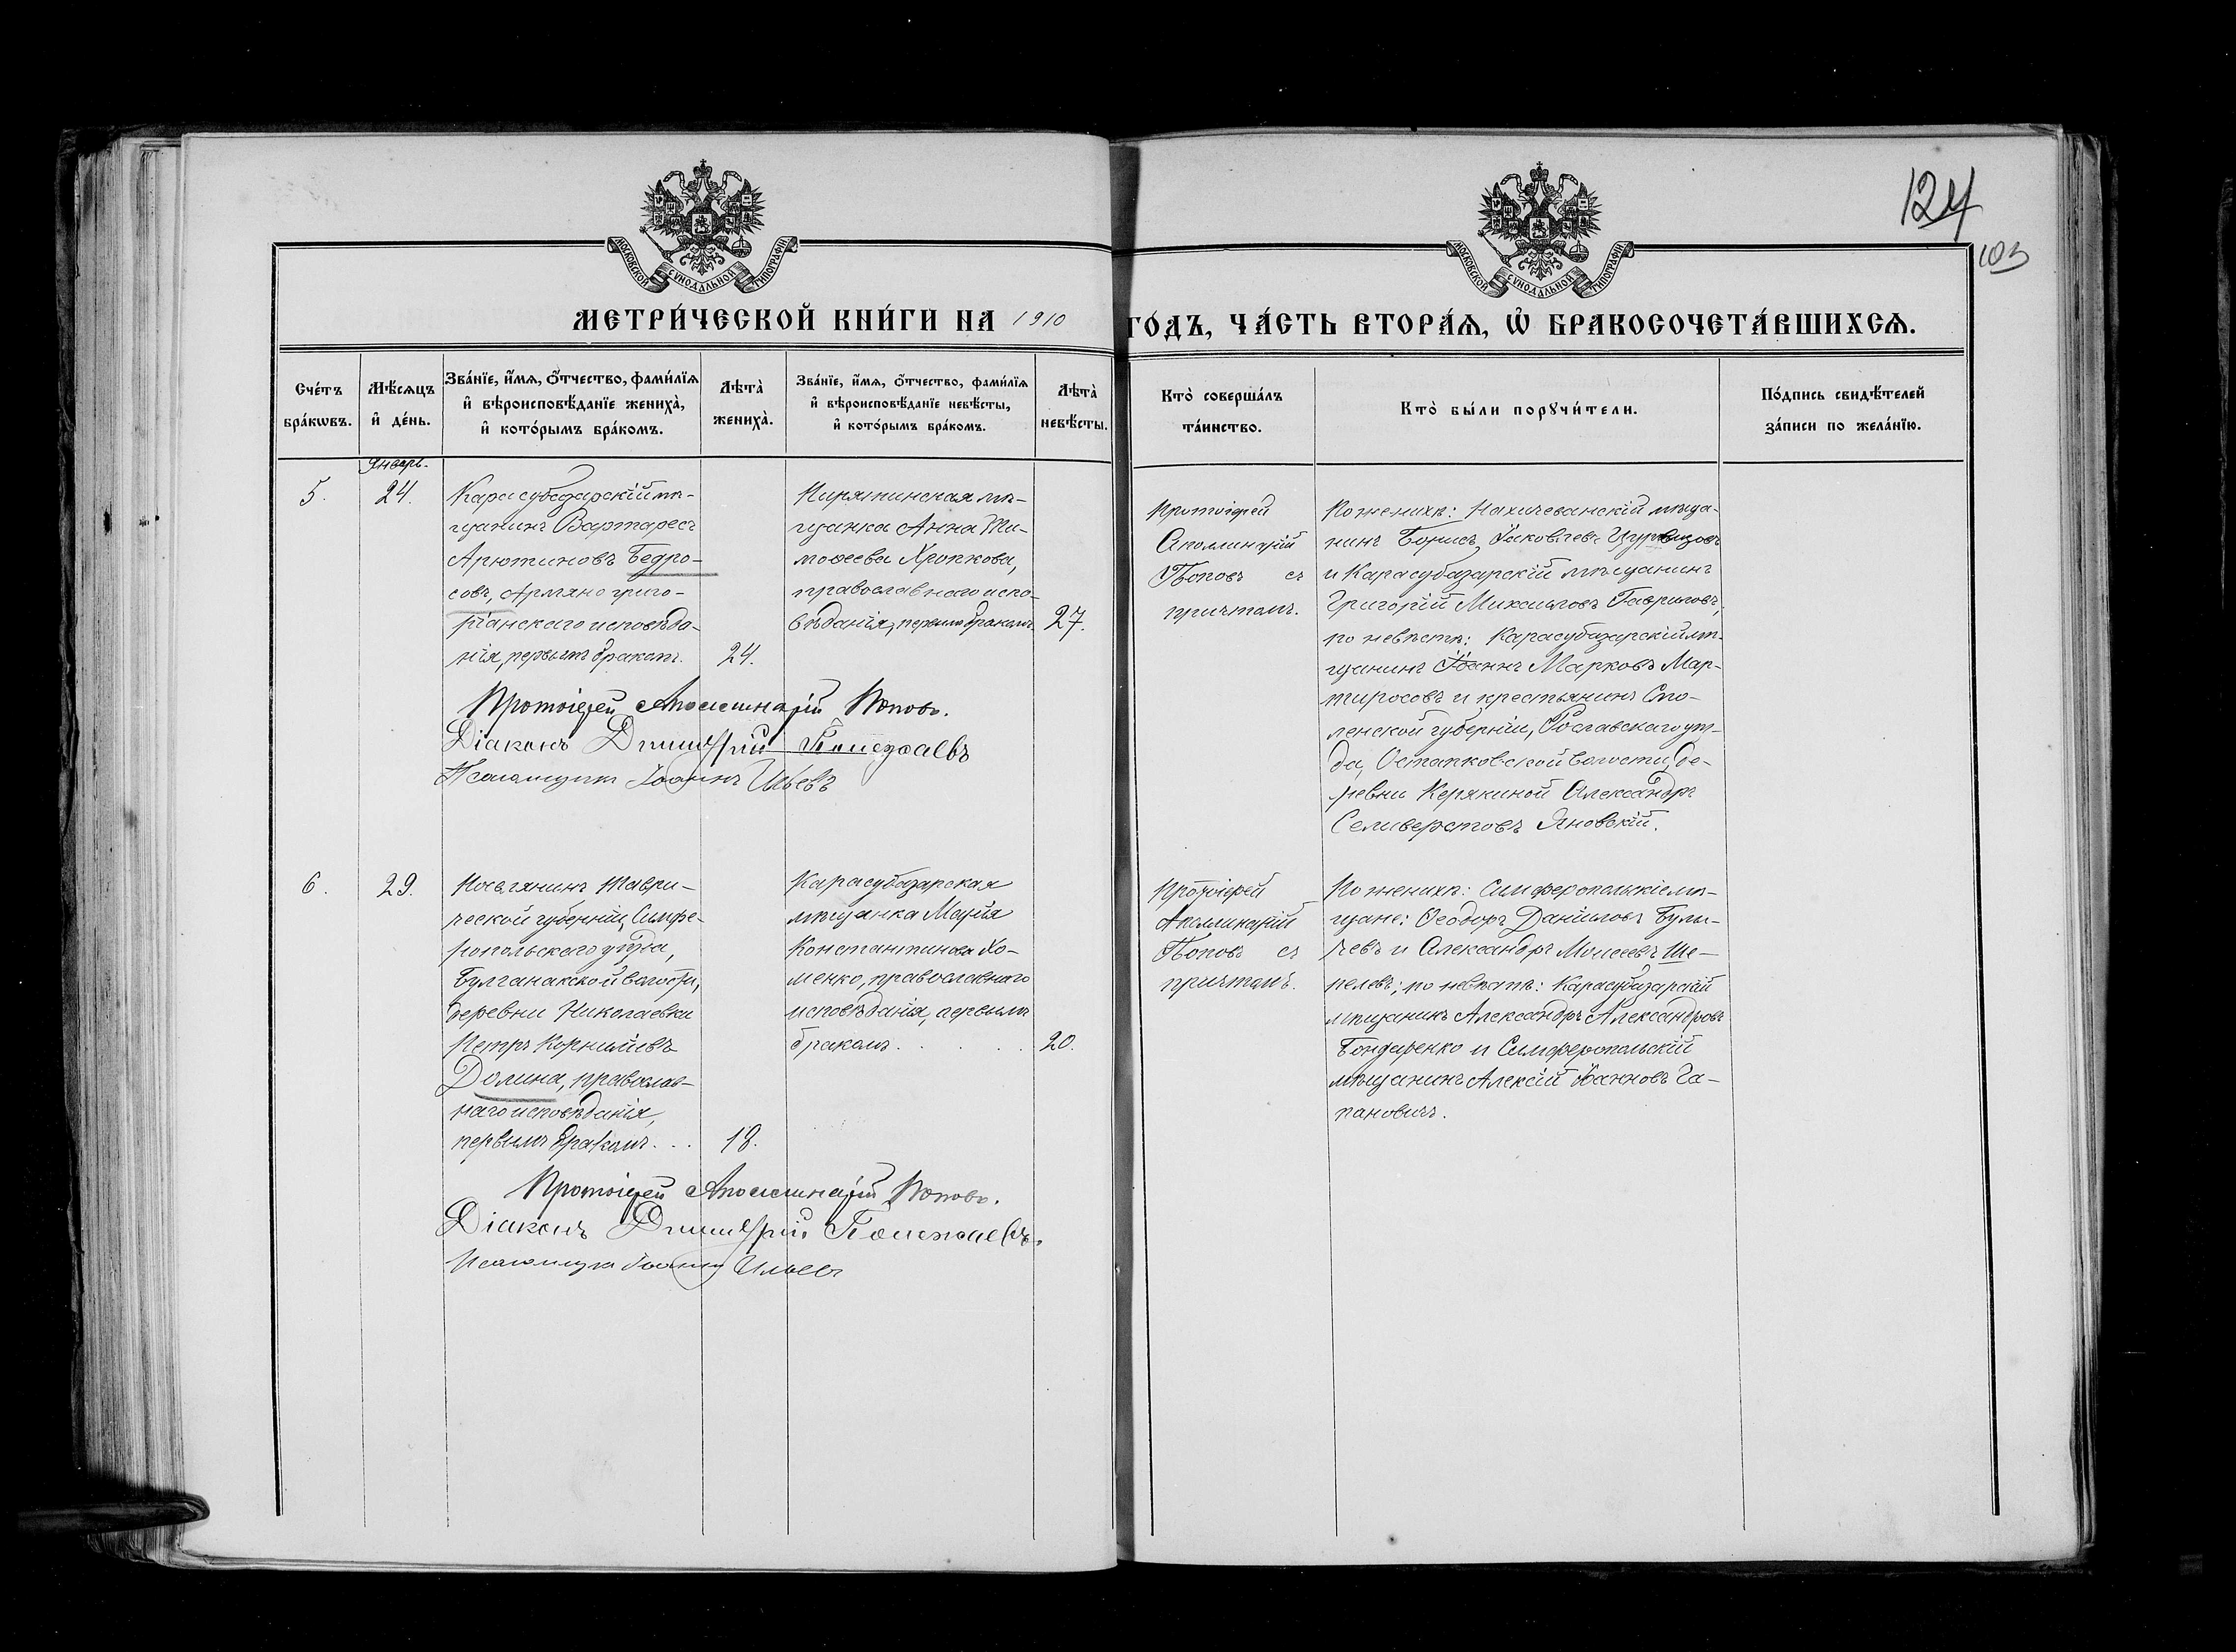 124
103
МОСКОВСКОЙ СѴНОДАЛЬНОЙ ТИПОГРАФІИ
МОСКОВСКОЙ СѴНОДАЛЬНОЙ ТИПОГРАФІИ
МЕТРИ́ЧЕСКОЙ КНИ́ГИ НА 1910
ГО́ДЪ, ЧА́СТЬ ВТОРА́Ѧ, Ѽ БРАКОСОЧЕТА́ВШИХСѦ.
Сче́тъ
бра́кѡвъ.
Мѣ́сѧцъ
и҆ де́нь.
Зва́нїе, и҆́мѧ, ѻ҆́тчество, фами́лїѧ
и҆ вѣроисповѣ́данїе жениха̀,
и҆ кото́рымъ бра́комъ.
Лѣта̀
жениха̀.
Зва́нїе, и҆́мѧ, ѻ҆́тчество, фами́лїѧ
и҆ вѣроисповѣ́данїе невѣ́сты,
и҆ кото́рымъ бра́комъ.
Лѣта̀
невѣ́сты.
Кто̀ соверша́лъ
та́инство.
Кто̀ бы́ли порꙋчи́тели.
По́дпись свидѣ́телей
за́писи по жела́нїю.
Январь.
5.
24.
Карасубазарскій мѣ-
щанинъ Вартаресъ
Арютиновъ Бедро-
совъ, Армяно григо-
ріанскаго исповѣда-
нія, первымъ бракомъ.
24.
Пирятинская мѣ-
щанка Анна Ти-
моѳеева Хропкова,
православнаго испо-
вѣданія, первымъ бракомъ.
27.
Протоіерей
Аполлинарій
Поповъ съ
причтомъ.
По женихѣ: Нахичеванскій мѣща-
нинъ Борисъ Яковлевъ
и Карасубазарскій мѣщанинъ
Григорій Михайловъ Гавриловъ,
по невѣстѣ: Карасубазарскій мѣ-
щанинъ Іоаннъ Марковъ Мар-
тиросовъ и крестьянинъ Смо-
ленской губерніи, Рославскаго уѣз-
да, Остапковской волости, де-
ревни Керякиной Александръ
Селиверстовъ Яновскій.
Протоіерей Аполлинарій Поповъ.
Діаконъ Димитрій Полежаевъ
Псаломщикъ Іоаннъ Ильевъ
6.
29.
Поселянинъ Таври-
ческой губерніи, Симфе-
ропольскаго уѣзда,
Булганакской волости,
деревни Николаевки
Петръ Корнилиевъ
Долина, православ-
наго исповѣданія,
первымъ бракомъ...
18.
Карасубазарская
мѣщанка Марія
Константинова Хо-
менко, православнаго
исповѣданія, первымъ
бракомъ.....
20.
Протоіерей
Аполлинарій
Поповъ съ
причтомъ.
По женихѣ: Симферопольскіе мѣ-
щане: Ѳеодоръ Даніиловъ Булы-
чевъ и Александръ Моисеевъ Ше-
пелевъ; по невѣстѣ: Карасубазарскій
мѣщанинъ Александръ Александровъ
Бондаренко и Симферопольскій
мѣщанинъ Алексій Іоанновъ Га-
пановичъ.
Протоіерей Аполлинарій Поповъ.
Діаконъ Димитрій Полежаевъ.
Псаломщикъ Іоаннъ Ильевъ